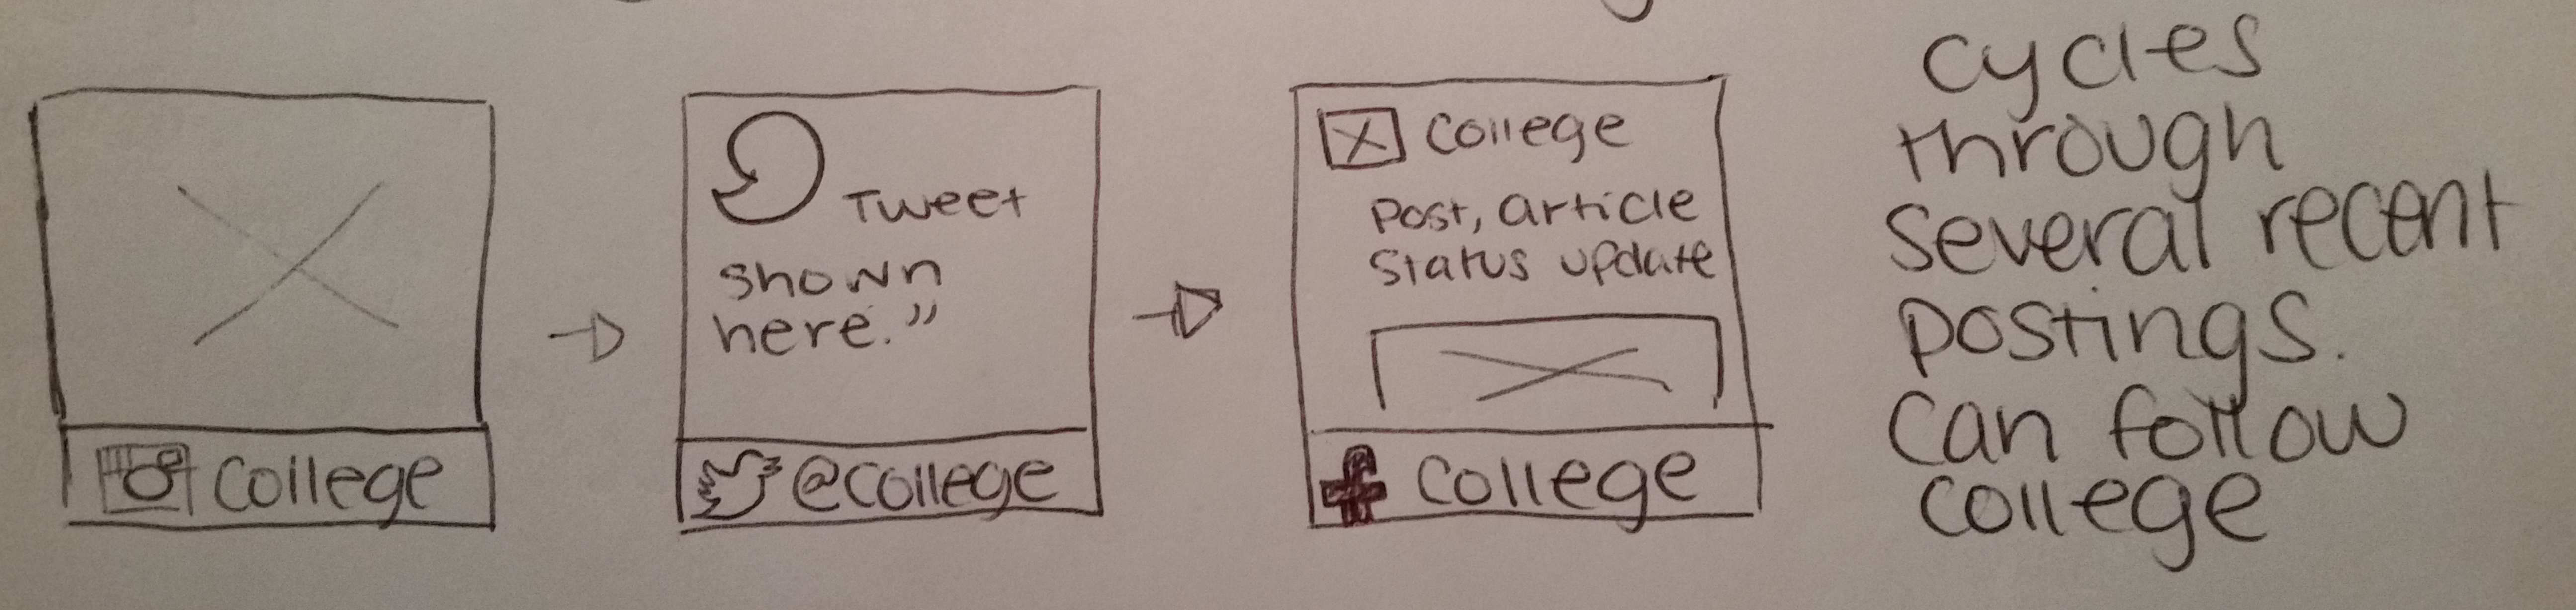 College
Tweet
shown
here."
@college
College
Post, article
status update
College
cycles
through
several recent
postings.
Can follow
college